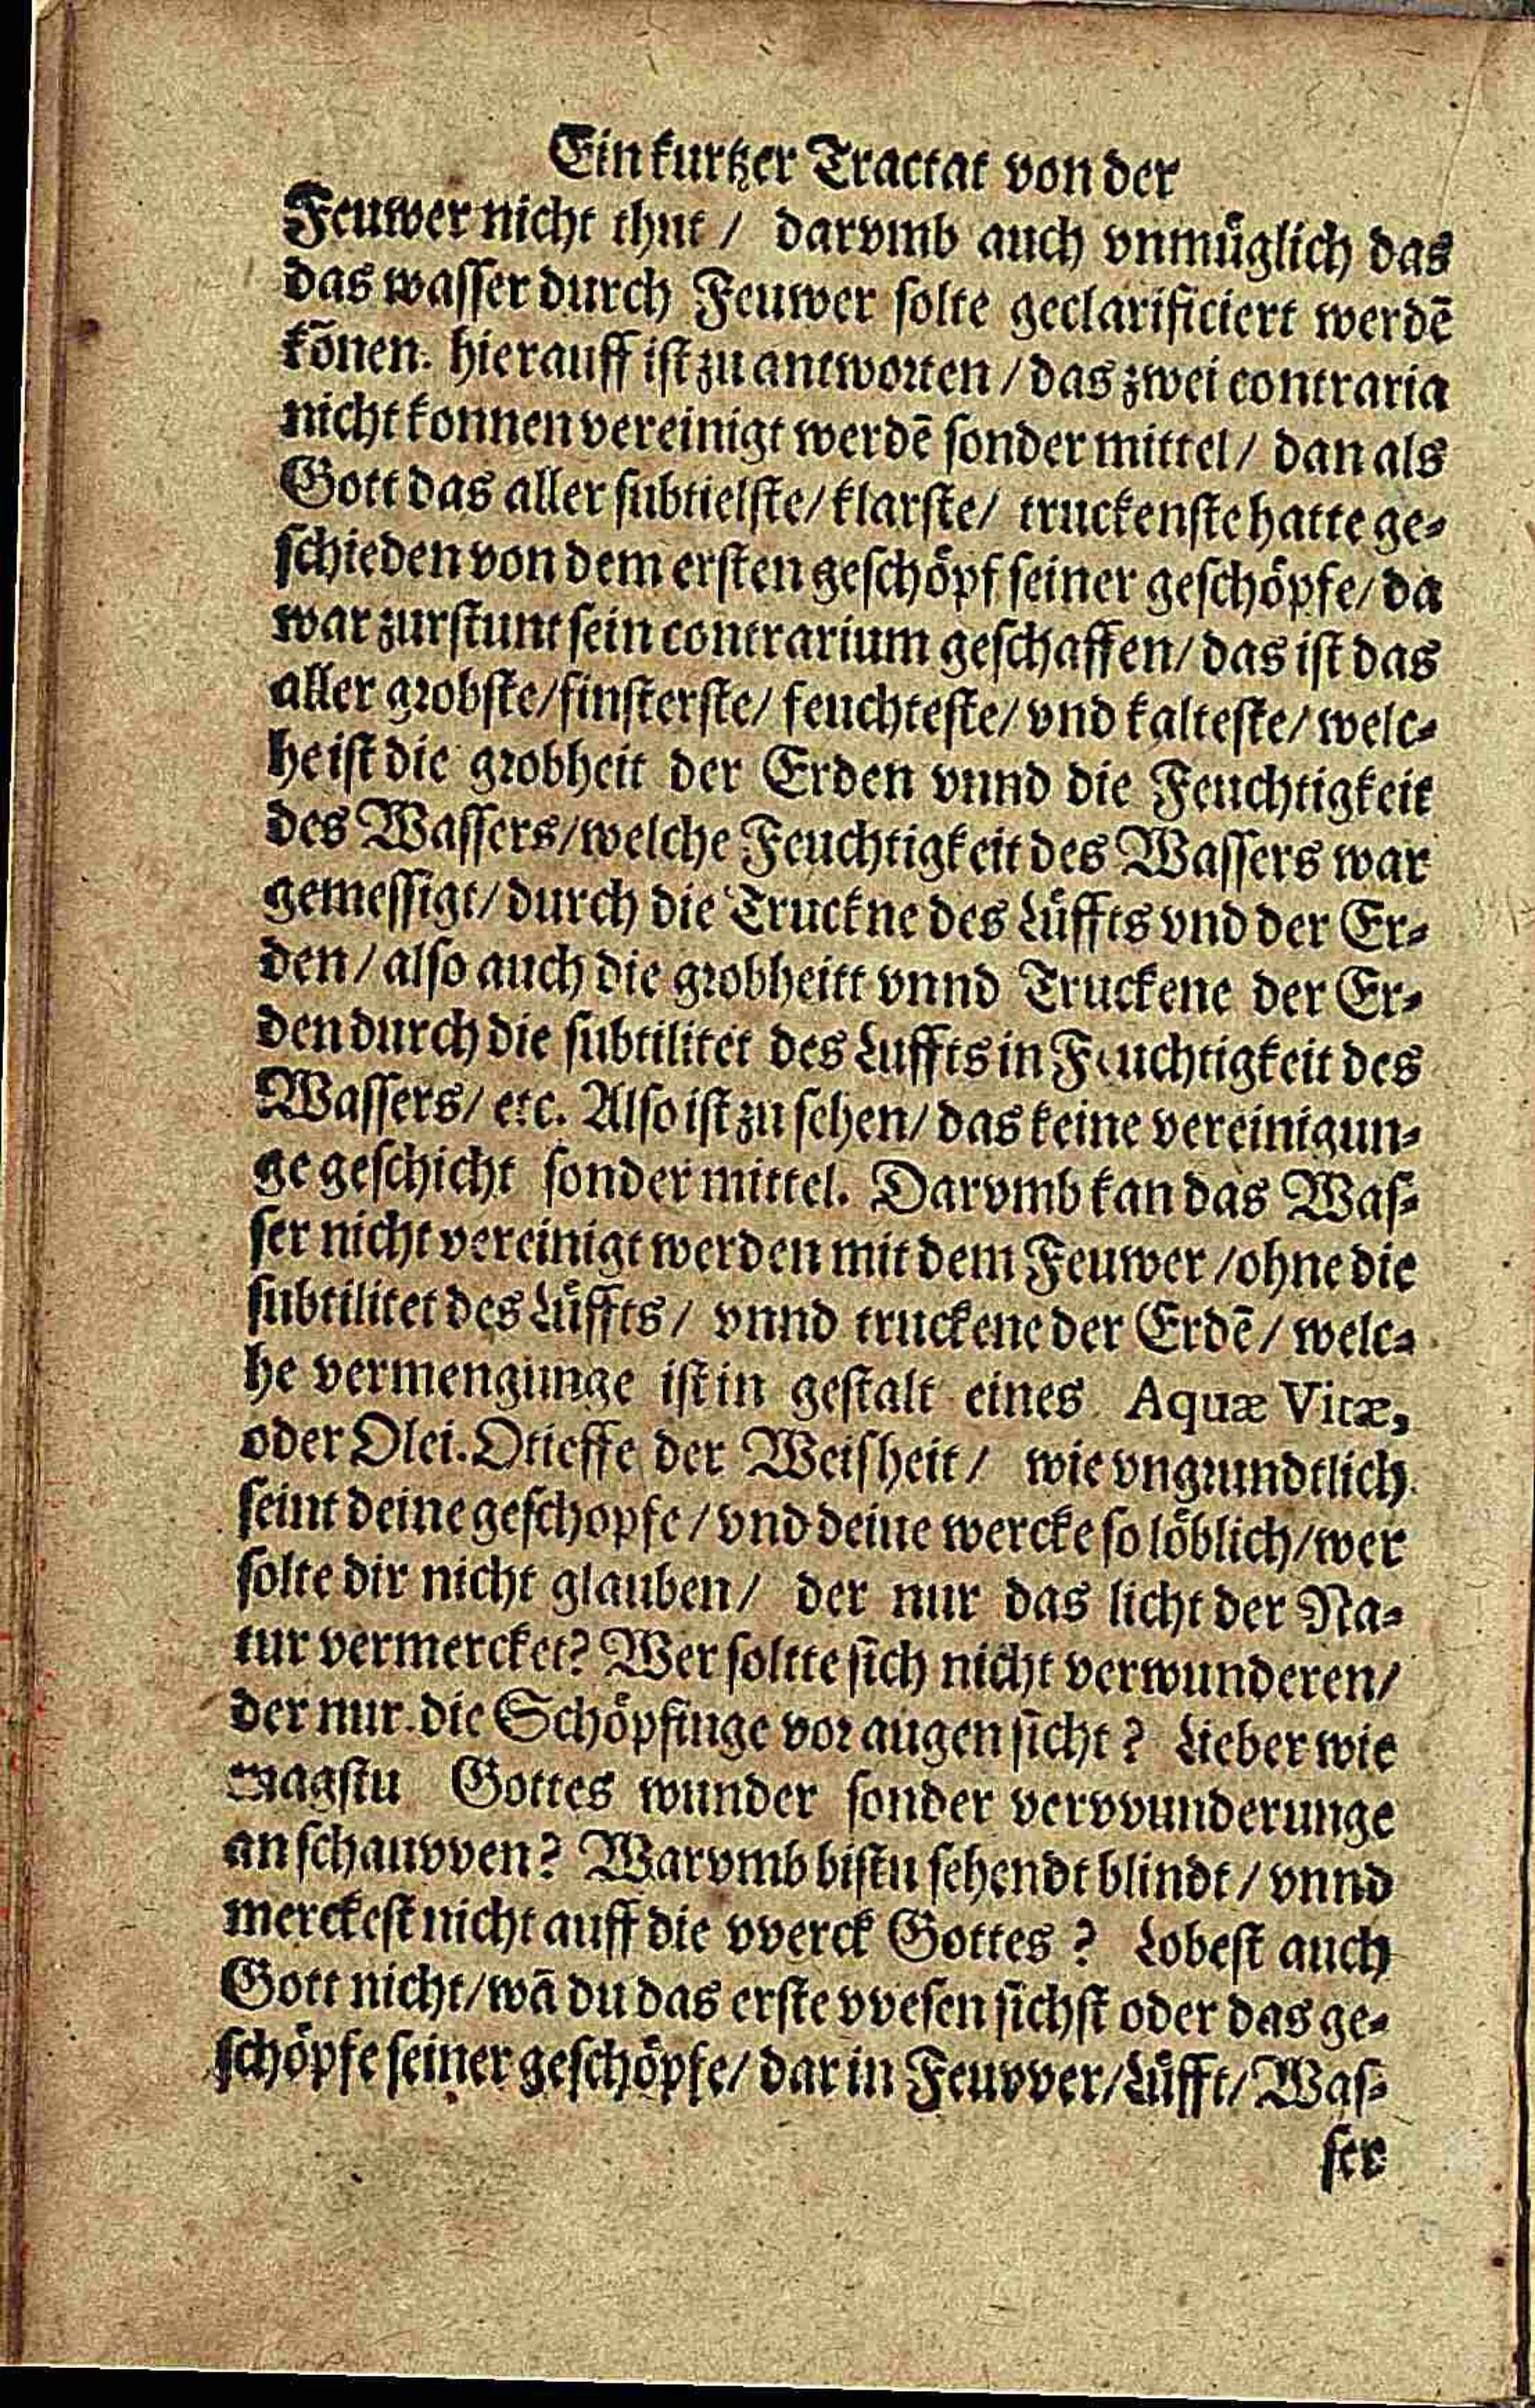 Ein kurtzer Tractat von der
Feuwer nicht thut / darvmb auch vnmüglich das
das wasser durch Feuwer solte geclarificiert werdē
kōnen. hierauff ist zu antworten / das zwei contraria
nicht konnen vereinigt werdē sonder mittel / dan als
Gott das aller subtielste / klarste / truckenste hatte ge-
schieden von dem ersten geschöpf seiner geschöpfe / da
war zurstunt sein contrarium geschaffen / das ist das
aller grobste / finsterste / feuchteste / vnd kalteste / welc-
he ist die grobheit der Erden vnnd die Feuchtigkeit
des Wassers / welche Feuchtigkeit des Wassers war
gemessigt / durch die Truckne des Lüffts vnd der Er-
den / also auch die grobheitt vnnd Truckene der Er-
den durch die subtilitet des Luffts in Feuchtigkeit des
Wassers / etc. Also ist zu sehen / das keine vereinigun-
ge geschicht sonder mittel. Darvmb kan das Was-
ser nicht vereinigt werden mit dem Feuwer / ohne die
subtilitet des Lüffts / vnnd truckene der Erdē / welc-
he vermengunge ist in gestalt eines Aquæ Vitæ,
oder Olei. O tieffe der Weisheit / wie vngrundtlich
seint deine geschopfe / vnd deine wercke so löblich / wer
solte dir nicht glauben / der nur das licht der Na-
tur vermercket? Wer soltte sich nicht verwunderen /
der nur die Schöpfinge vor augen sicht? Lieber wie
magstu Gottes wunder sonder vervvunderunge
an schauvven? Warvmb bistu sehendt blindt / vnnd
merckest nicht auff die vverck Gottes? Lobest auch
Gott nicht / wā du das erste vvesen sichst oder das ge-
schöpfe seiner geschöpfe / dar in Feuvver / Lüfft / Was-
ser